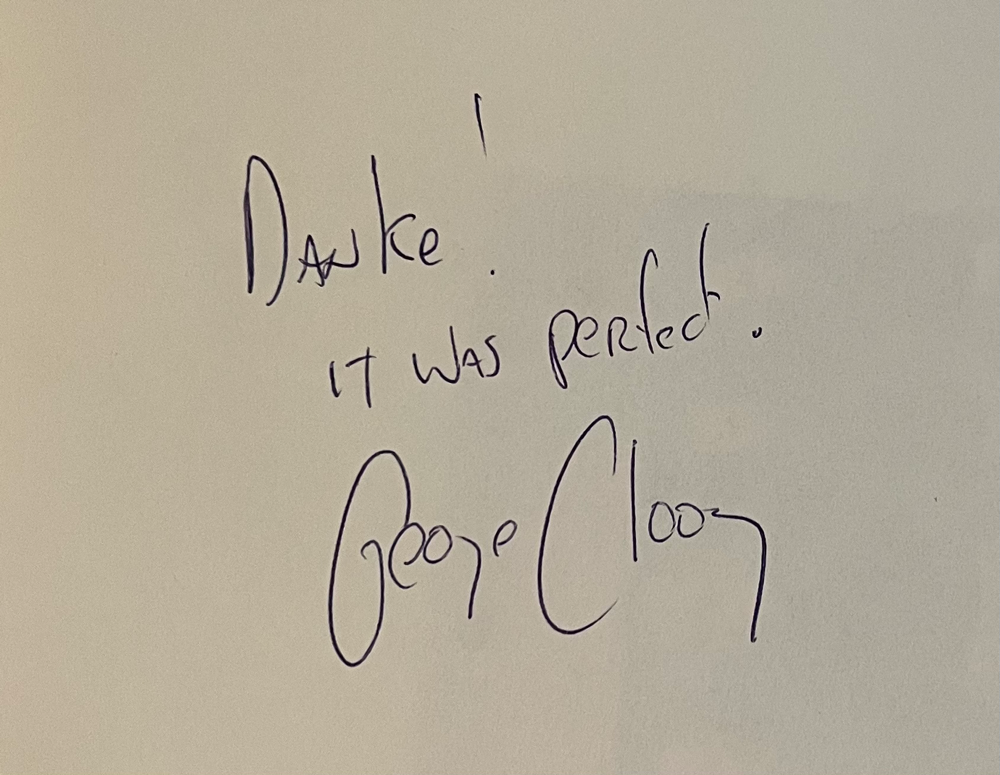 Danke!
IT WAS perfect.
George Clooney